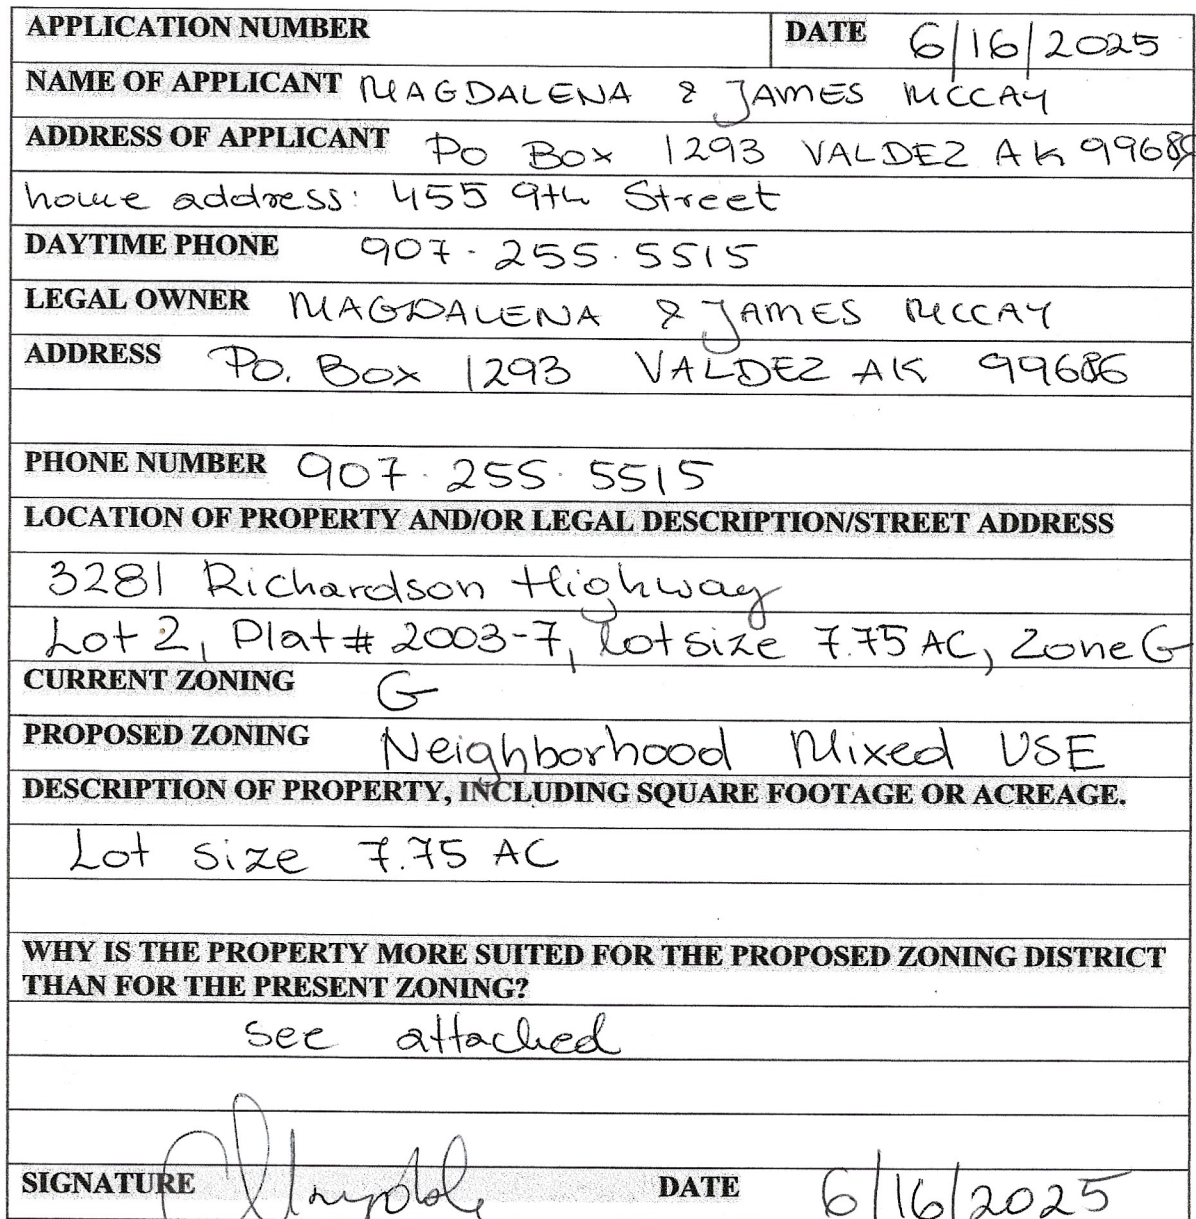 APPLICATION NUMBER DATE 6/16/2025
NAME OF APPLICANT MAGDALENA & JAMES MCCAY
ADDRESS OF APPLICANT PO BOX 1293 VALDEZ AK 99686
home address: 455 9th Street
DAYTIME PHONE 907-255-5515
LEGAL OWNER MAGDALENA & JAMES MCCAY
ADDRESS PO. Box 1293 VALDEZ AK 99686
PHONE NUMBER 907-255-5515
LOCATION OF PROPERTY AND/OR LEGAL DESCRIPTION/STREET ADDRESS
3281 Richardson Highway
Lot 2, Plat # 2003-7, lot size 7.75 AC, Zone G
CURRENT ZONING G
PROPOSED ZONING Neighborhood Mixed USE
DESCRIPTION OF PROPERTY, INCLUDING SQUARE FOOTAGE OR ACREAGE.
Lot size 7.75 AC
WHY IS THE PROPERTY MORE SUITED FOR THE PROPOSED ZONING DISTRICT
THAN FOR THE PRESENT ZONING?
see attached
SIGNATURE DATE 6/16/2025